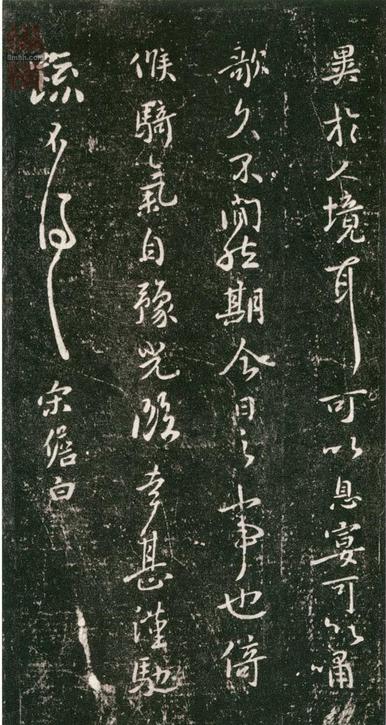 異於人境耳可以息宴可以嘯
歌久不間然期今日之小事也倚
候騎氣自豫光臨幸甚謹馳
疏不得
宋儋白